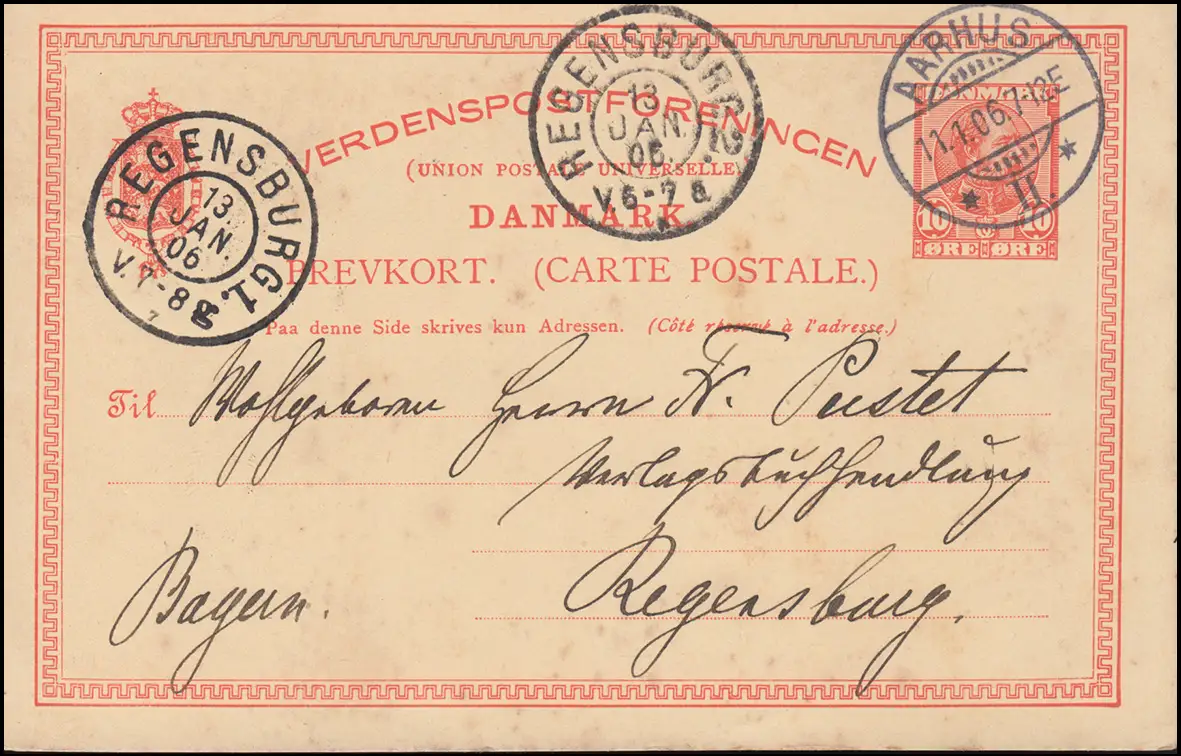 VERDENSPOSTFORENINGEN
(UNION POSTALE UNIVERSELLE)
DANMARK
BREVKORT. (CARTE POSTALE.)
Paa denne Side skrives kun Adressen. (Côté réservé à l'adresse.)
REGENSBURG 1.
13.
JAN.
06
V. 7-8
REGENSBURG 2.
13
JAN.
06.
V. 6-7 a
AARHUS
11.1.06.7-12E
* II. *
DANMARK
10 10
ØRE ØRE
Til Wohlgeboren Herrn Fr. Pustet
Verlagsbuchhandlung
Regensburg.
Bayern.